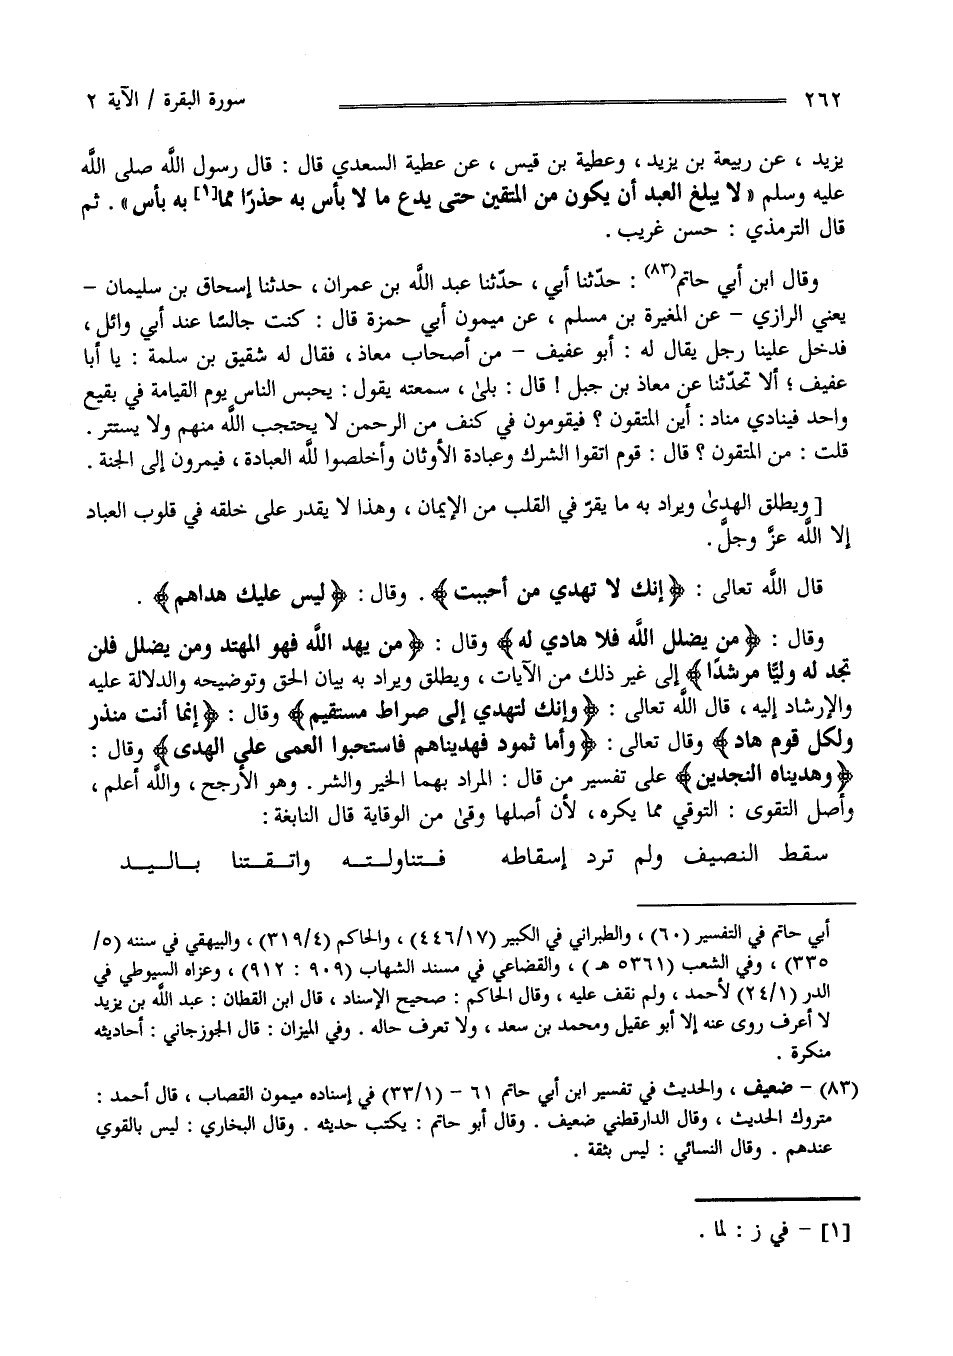 ٢٦٢ سورة البقرة / الآية ٢
يزيد ، عن ربيعة بن يزيد ، وعطية بن قيس ، عن عطية السعدي قال : قال رسول الله صلى الله
عليه وسلم « لا يبلغ العبد أن يكون من المتقين حتى يدع ما لا بأس به حذرًا مما[١] به بأس» . ثم
قال الترمذي : حسن غريب .
وقال ابن أبي حاتم(٨٣) : حدّثنا أبي ، حدّثنا عبد الله بن عمران ، حدثنا إسحاق بن سليمان –
يعني الرازي – عن المغيرة بن مسلم ، عن ميمون أبي حمزة قال : كنت جالسًا عند أبي وائل ،
فدخل علينا رجل يقال له : أبو عفيف – من أصحاب معاذ ، فقال له شقيق بن سلمة : يا أبا
عفيف ؛ ألا تحدّثنا عن معاذ بن جبل ! قال : بلىٰ ، سمعته يقول : يحبس الناس يوم القيامة في بقيع
واحد فينادي مناد : أين المتقون ؟ فيقومون في كنف من الرحمن لا يحتجب الله منهم ولا يستتر .
قلت : من المتقون ؟ قال : قوم اتقوا الشرك وعبادة الأوثان وأخلصوا لله العبادة ، فيمرون إلى الجنة .
[ ويطلق الهدىٰ ويراد به ما يقرّ في القلب من الإيمان ، وهذا لا يقدر على خلقه في قلوب العباد
إلا الله عزَّ وجلَّ .
قال الله تعالى : ﴿إنك لا تهدي من أحببت﴾ . وقال : ﴿ليس عليك هداهم﴾ .
وقال : ﴿من يضلل الله فلا هادي له﴾ وقال : ﴿من يهد الله فهو المهتد ومن يضلل فلن
تجد له وليًّا مرشدًا﴾ إلى غير ذلك من الآيات ، ويطلق ويراد به بيان الحق وتوضيحه والدلالة عليه
والإرشاد إليه ، قال الله تعالى : ﴿وإنك لتهدي إلى صراط مستقيم﴾ وقال : ﴿إنما أنت منذر
ولكل قوم هاد﴾ وقال تعالى : ﴿وأما ثمود فهديناهم فاستحبوا العمى على الهدى﴾ وقال :
﴿وهديناه النجدين﴾ على تفسير من قال : المراد بهما الخير والشر . وهو الأرجح ، والله أعلم ،
وأصل التقوى : التوقي مما يكره ، لأن أصلها وقىٰ من الوقاية قال النابغة :
سقط النصيف ولم ترد إسقاطه فـتناولـتـه واتـقـتنا بـالـيـد
أبي حاتم في التفسير (٦٠) ، والطبراني في الكبير (٤٤٦/١٧) ، والحاكم (٣١٩/٤) ، والبيهقي في سننه (٥/
٣٣٥) ، وفي الشعب (٥٣٦١ هـ ) ، والقضاعي في مسند الشهاب (٩٠٩ : ٩١٢) ، وعزاه السيوطي في
الدر (٢٤/١) لأحمد ، ولم نقف عليه ، وقال الحاكم : صحيح الإسناد ، قال ابن القطان : عبد الله بن يزيد
لا أعرف روى عنه إلا أبو عقيل ومحمد بن سعد ، ولا تعرف حاله . وفي الميزان : قال الجوزجاني : أحاديثه
منكرة .
(٨٣) – ضعيف ، والحديث في تفسير ابن أبي حاتم ٦١ – (٣٣/١) في إسناده ميمون القصاب ، قال أحمد :
متروك الحديث ، وقال الدارقطني ضعيف . وقال أبو حاتم : يكتب حديثه . وقال البخاري : ليس بالقوي
عندهم . وقال النسائي : ليس بثقة .
[١] – في ز : لما .